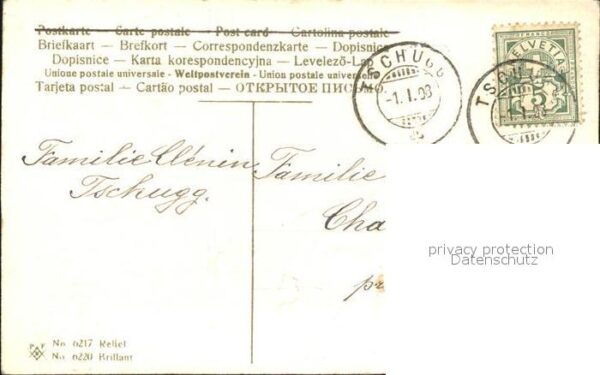 Postkarte — Carte postale — Post card — Cartolina postale
Briefkaart - Brefkort - Correspondenzkarte - Dopisnice
Dopisnice - Karta korespondencyjna - Levelező-La
Unione postale universale - Weltpostverein - Union postale universelle
Tarjeta postal - Cartão postal - ОТКРЫТОЕ ПИСЬМО.
TSCHUGG
-1.I.08
HELVETIA
5
TSCHU
Familie Clénin
Tschugg.
Familie
Cha
privacy protection
Datenschutz
No. 6217 Relief
No. 6220 Brillant